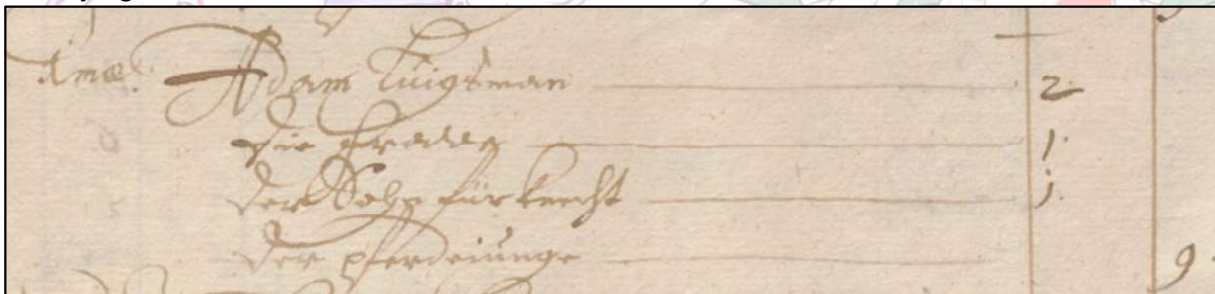 dmæ. Adam Luigsman 2.
Die Frauw 1.
Der Sohn für knecht 1.
Der pferdeiunge 9.